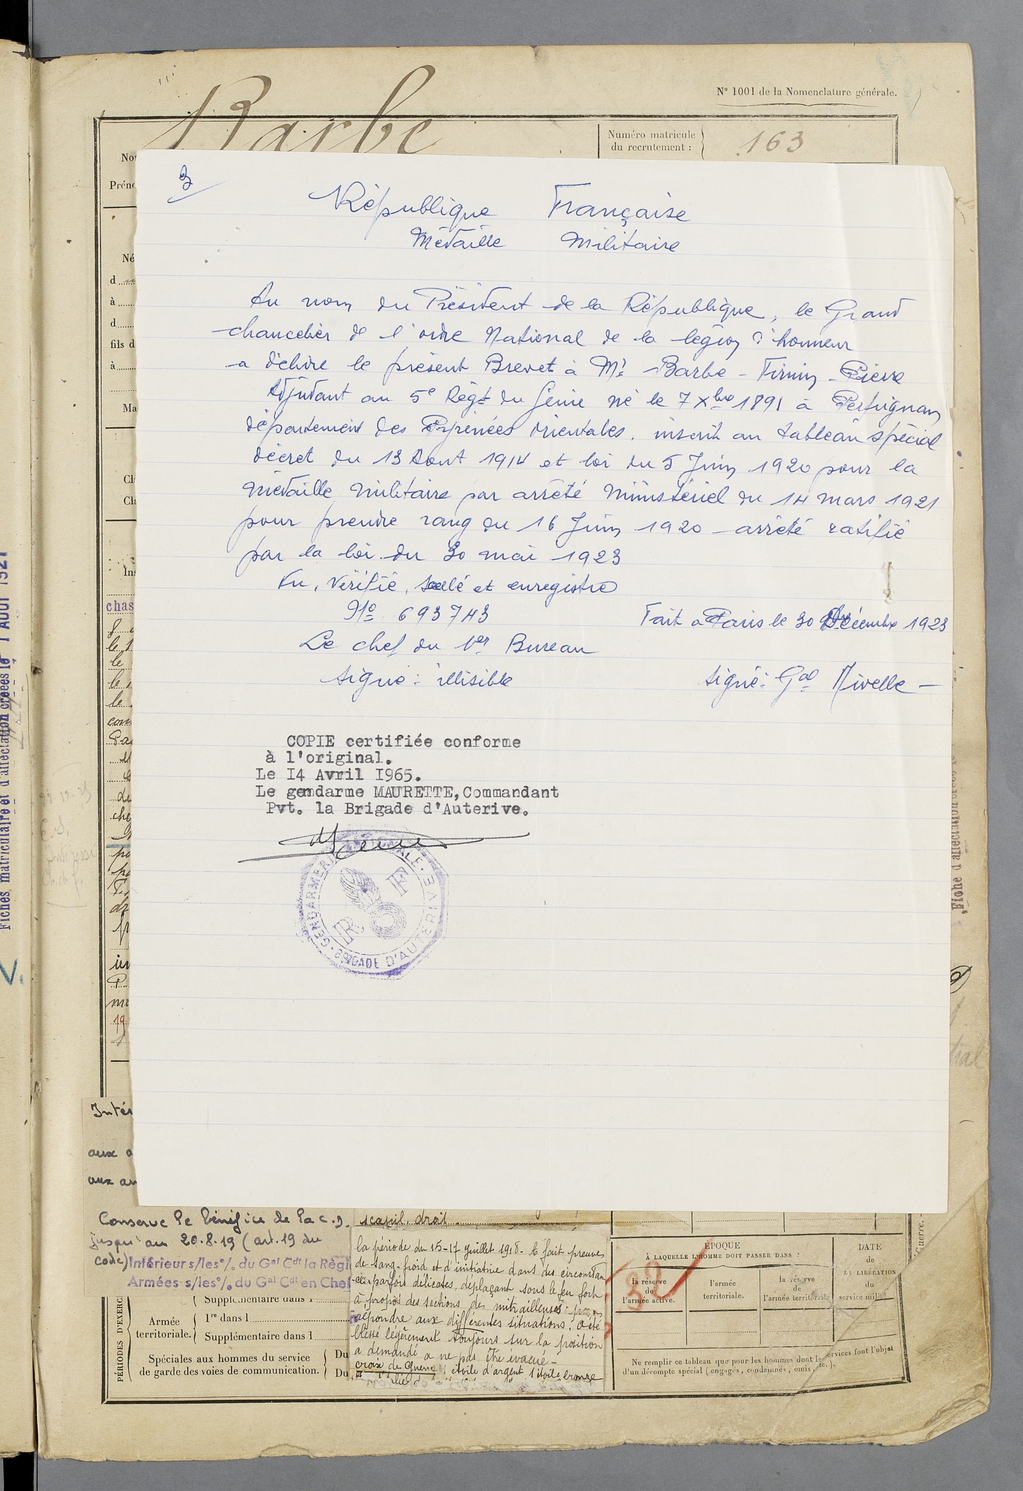 Barbe
N° 1001 de la Nomenclature générale.
Numéro matricule
du recrutement :
163
3
République Française
Médaille Militaire
Au nom du Président de la République, le Grand
chancelier de l'ordre National de la légion d'honneur
a délivré le présent Brevet à Mr Barbe - Firmin - Pierre
Adjudant au 5e Régt du Génie né le 7 Xbre 1891 à Perpignan
département des Pyrénées orientales. inscrit au tableau spécial
décret du 13 Aout 1914 et loi du 5 Juin 1920 pour la
médaille militaire par arrêté ministériel du 14 mars 1921
pour prendre rang du 16 Juin 1920 - arrêté ratifié
par la loi du 30 mai 1923
Vu, Vérifié, scellé et enregistré
No 693743
Fait à Paris le 30 Décembre 1923
Le chef du 1er Bureau
signé : illisible
signé : Gal Nivelle -
COPIE certifiée conforme
à l'original.
Le I4 Avril I965.
Le gendarme MAURETTE, Commandant
Pvt. la Brigade d'Auterive.
GENDARMERIE NATIONALE
R F
BRIGADE D'AUTERIVE
Conserve le bénéfice de la C.D.
jusqu'au 20.8.19 (art. 19 du
code)
Intérieur s/les % du Gal Cdt la Régi
Armées s/les % du Gal Cdt en Chef
la période du 15-17 juillet 1918. a fait preuve
de sang-froid et d'initiative dans des circonstan
ces parfois délicates, déplaçant sous le feu fort
à propos des sections de mitrailleuses pour
répondre aux différentes situations. a été
blessé légèrement toujours sur la position
a demandé a ne pas être évacué -
croix de guerre, étoile d'argent 1 étoile bronze
PÉRIODES D'EXERC
Supplémentaire dans l
Armée
territoriale.
1re dans l
Supplémentaire dans l
Spéciales aux hommes du service
de garde des voies de communication.
Du
Du
ÉPOQUE
À LAQUELLE L'HOMME DOIT PASSER DANS :
DATE
de
LA LIBÉRATION
du
service militaire
la réserve
de
l'armée active.
l'armée
territoriale.
la réserve
de
l'armée territoriale
Ne remplir ce tableau que pour les hommes dont les services font l'objet
d'un décompte spécial (engagés, condamnés, omis, etc.).